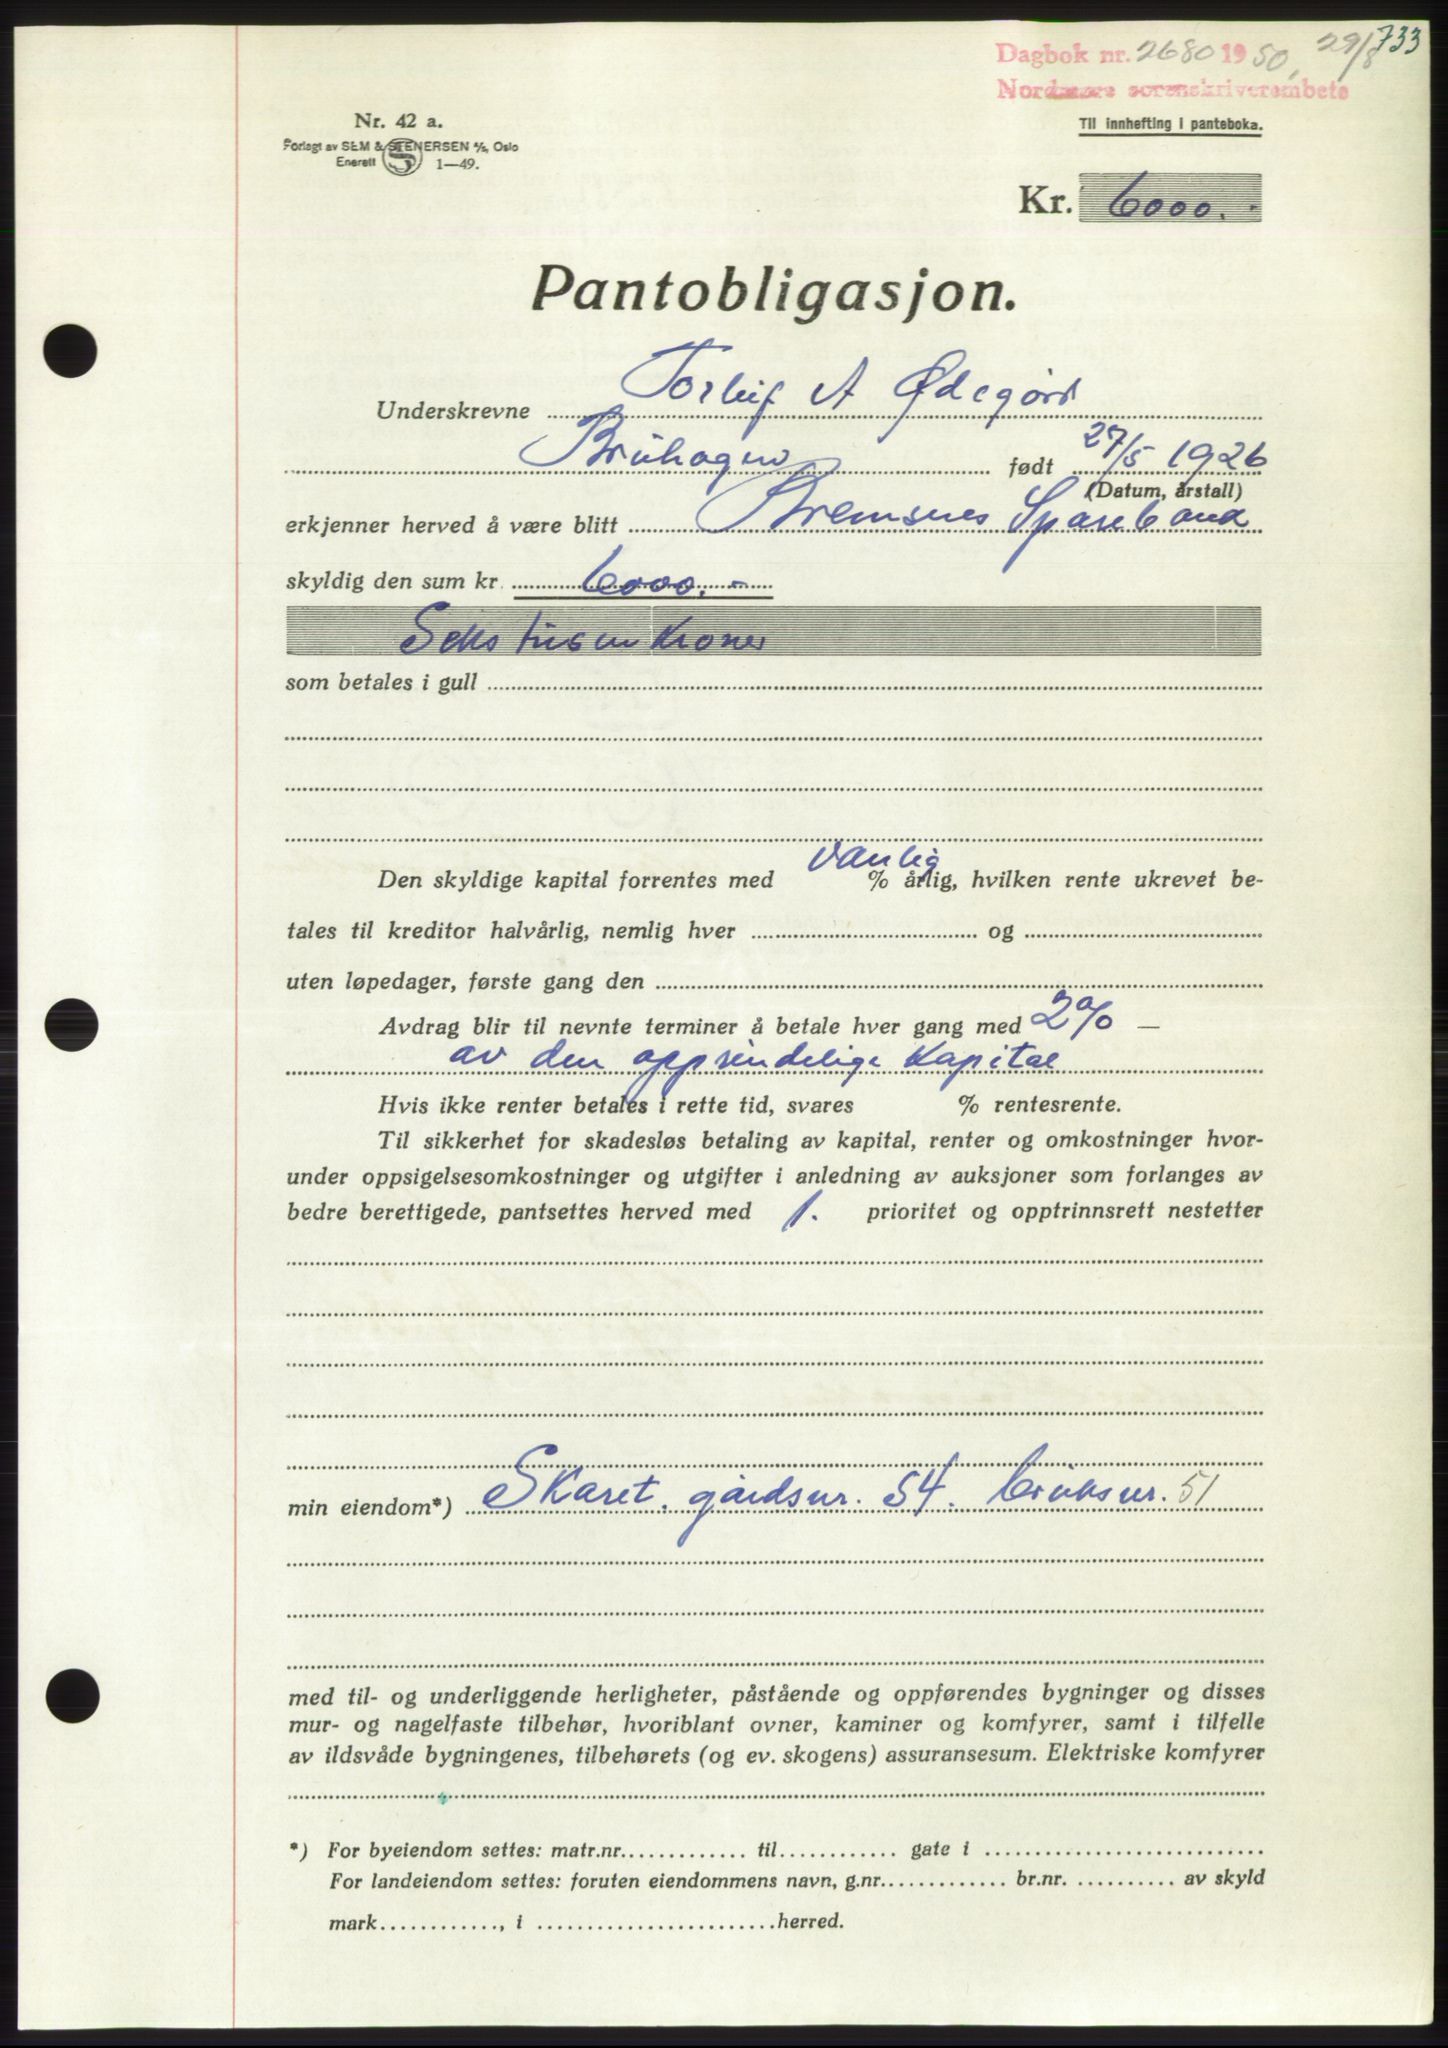 733
Dagbok nr. 2680 1950, 29/8
Nordmøre sorenskriverembete
Nr. 42 a.
Til innhefting i panteboka.
Forlagt av SEM & STENERSEN A/S, Oslo
Enerett S 1—49.
Kr. 6000.-
Pantobligasjon.
Underskrevne Torleif A Ødegård
født 27/5 1926
(Datum, årstall)
erkjenner herved å være blitt Bremsnes Sparebank
skyldig den sum kr. 6000.-
Seks tusen kroner
som betales i gull
Den skyldige kapital forrentes med vanlig % årlig, hvilken rente ukrevet be-
tales til kreditor halvårlig, nemlig hver og
uten løpedager, første gang den
Avdrag blir til nevnte terminer å betale hver gang med 2% —
av den opprindelige kapital
Hvis ikke renter betales i rette tid, svares % rentesrente.
Til sikkerhet for skadesløs betaling av kapital, renter og omkostninger hvor-
under oppsigelsesomkostninger og utgifter i anledning av auksjoner som forlanges av
bedre berettigede, pantsettes herved med 1. prioritet og opptrinnsrett nestetter
min eiendom*) Skaret, gårdsnr. 54. bruksnr. 51
med til- og underliggende herligheter, påstående og oppførendes bygninger og disses
mur- og nagelfaste tilbehør, hvoriblant ovner, kaminer og komfyrer, samt i tilfelle
av ildsvåde bygningenes, tilbehørets (og ev. skogens) assuransesum. Elektriske komfyrer
*) For byeiendom settes: matr.nr. til gate i
For landeiendom settes: foruten eiendommens navn, g.nr. br.nr. av skyld
mark , i herred.